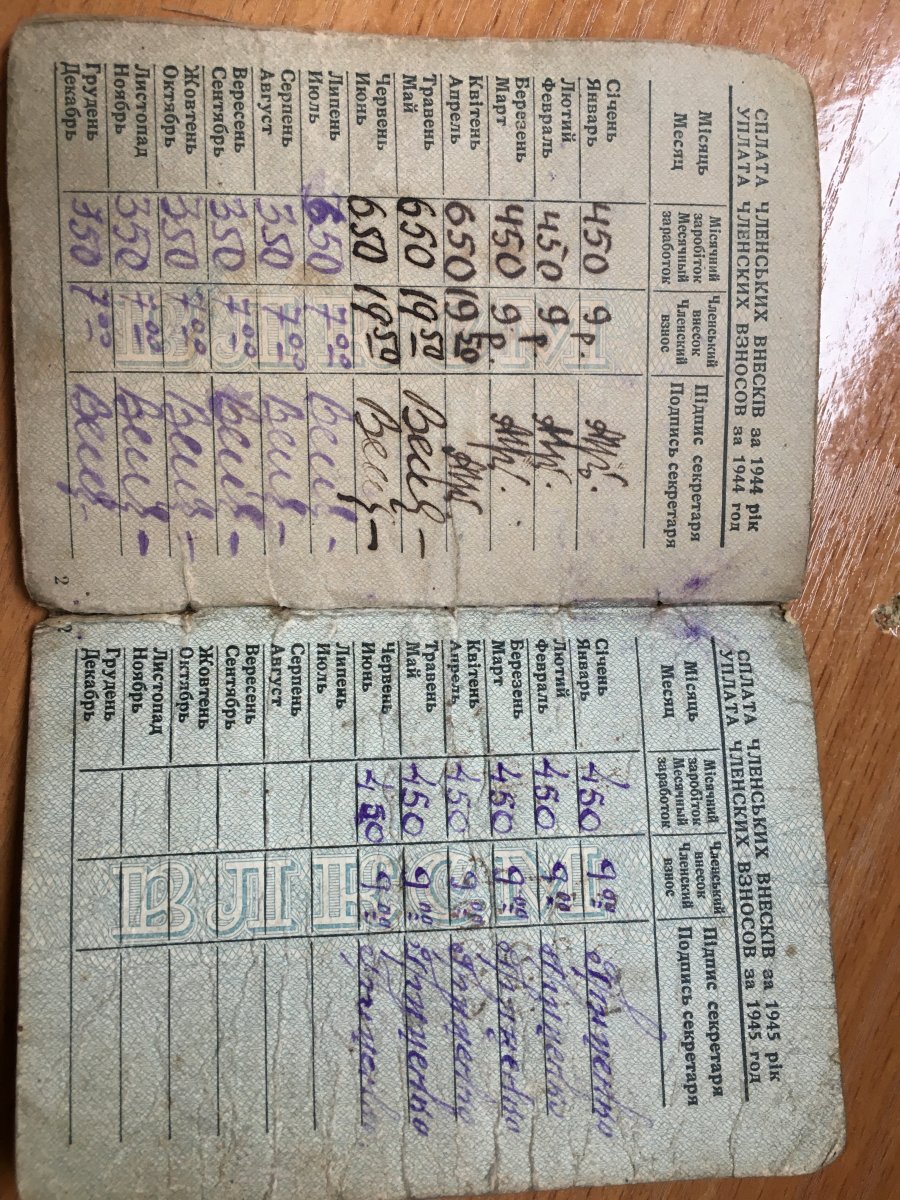 СПЛАТА ЧЛЕНСЬКИХ ВНЕСКІВ за 1944 рік
УПЛАТА ЧЛЕНСКИХ ВЗНОСОВ за 1944 год
Місяць Місячний заробіток Членський внесок Підпис секретаря
Месяц Месячный заработок Членский взнос Подпись секретаря
Січень
Январь 450 9 р.
Лютий
Февраль 450 9 р.
Березень
Март 450 9 р.
Квітень
Апрель 650 19 50
Травень
Май 650 19 50
Червень
Июнь 650 19 50
Липень
Июль 650 7 00
Серпень
Август 350 7 00
Вересень
Сентябрь 350 7 00
Жовтень
Октябрь 350 7 00
Листопад
Ноябрь 350 7 00
Грудень
Декабрь 350 7 00
ВЛКСМ
2
СПЛАТА ЧЛЕНСЬКИХ ВНЕСКІВ за 1945 рік
УПЛАТА ЧЛЕНСКИХ ВЗНОСОВ за 1945 год
Місяць Місячний заробіток Членський внесок Підпис секретаря
Месяц Месячный заработок Членский взнос Подпись секретаря
Січень
Январь 450 9 00
Лютий
Февраль 450 9 00
Березень
Март 450 9 00
Квітень
Апрель 450 9 00
Травень
Май 450 9 00
Червень
Июнь 450 9 00
Липень
Июль
Серпень
Август
Вересень
Сентябрь
Жовтень
Октябрь
Листопад
Ноябрь
Грудень
Декабрь
ВЛКСМ